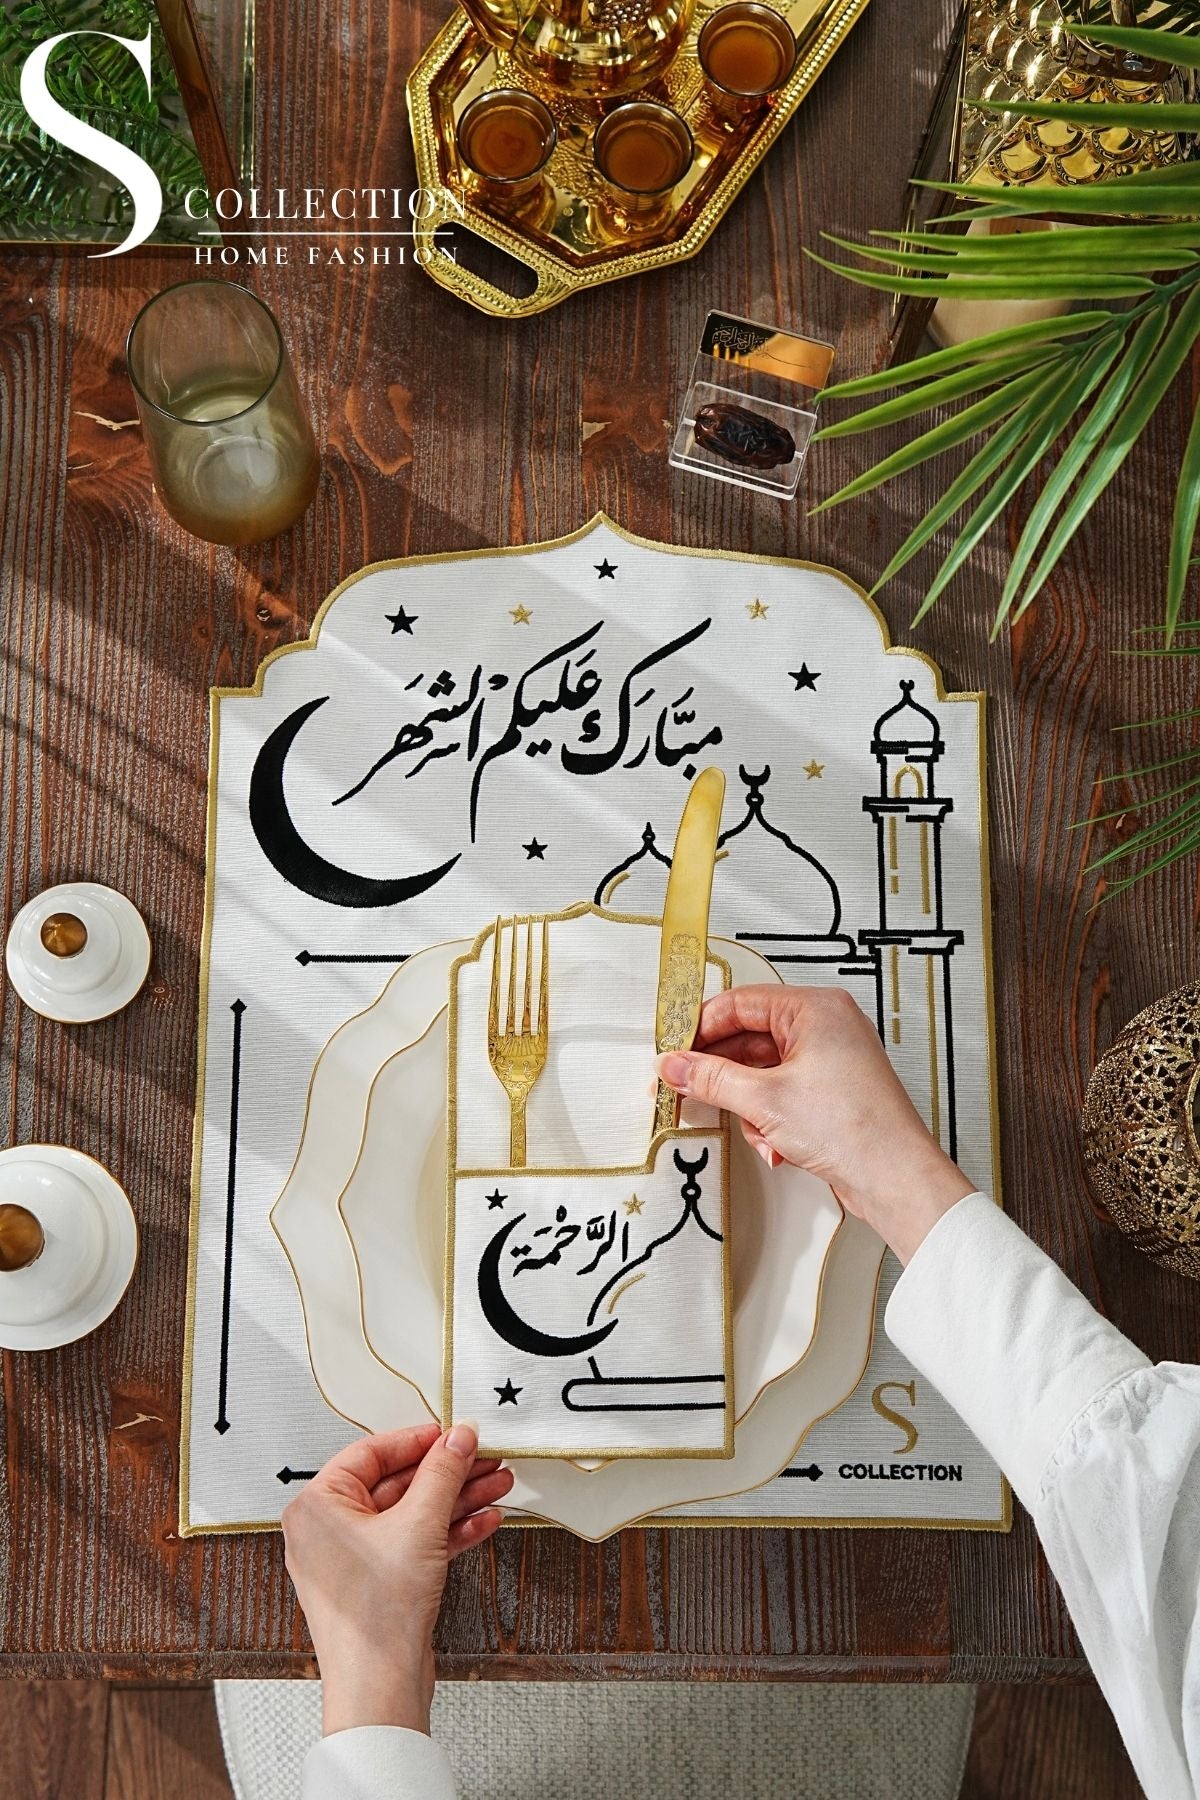 S
COLLECTION
HOME FASHION
مُبَّارَك عَليكُمْ الشَهَر
الرَّحْمَة
S
COLLECTION